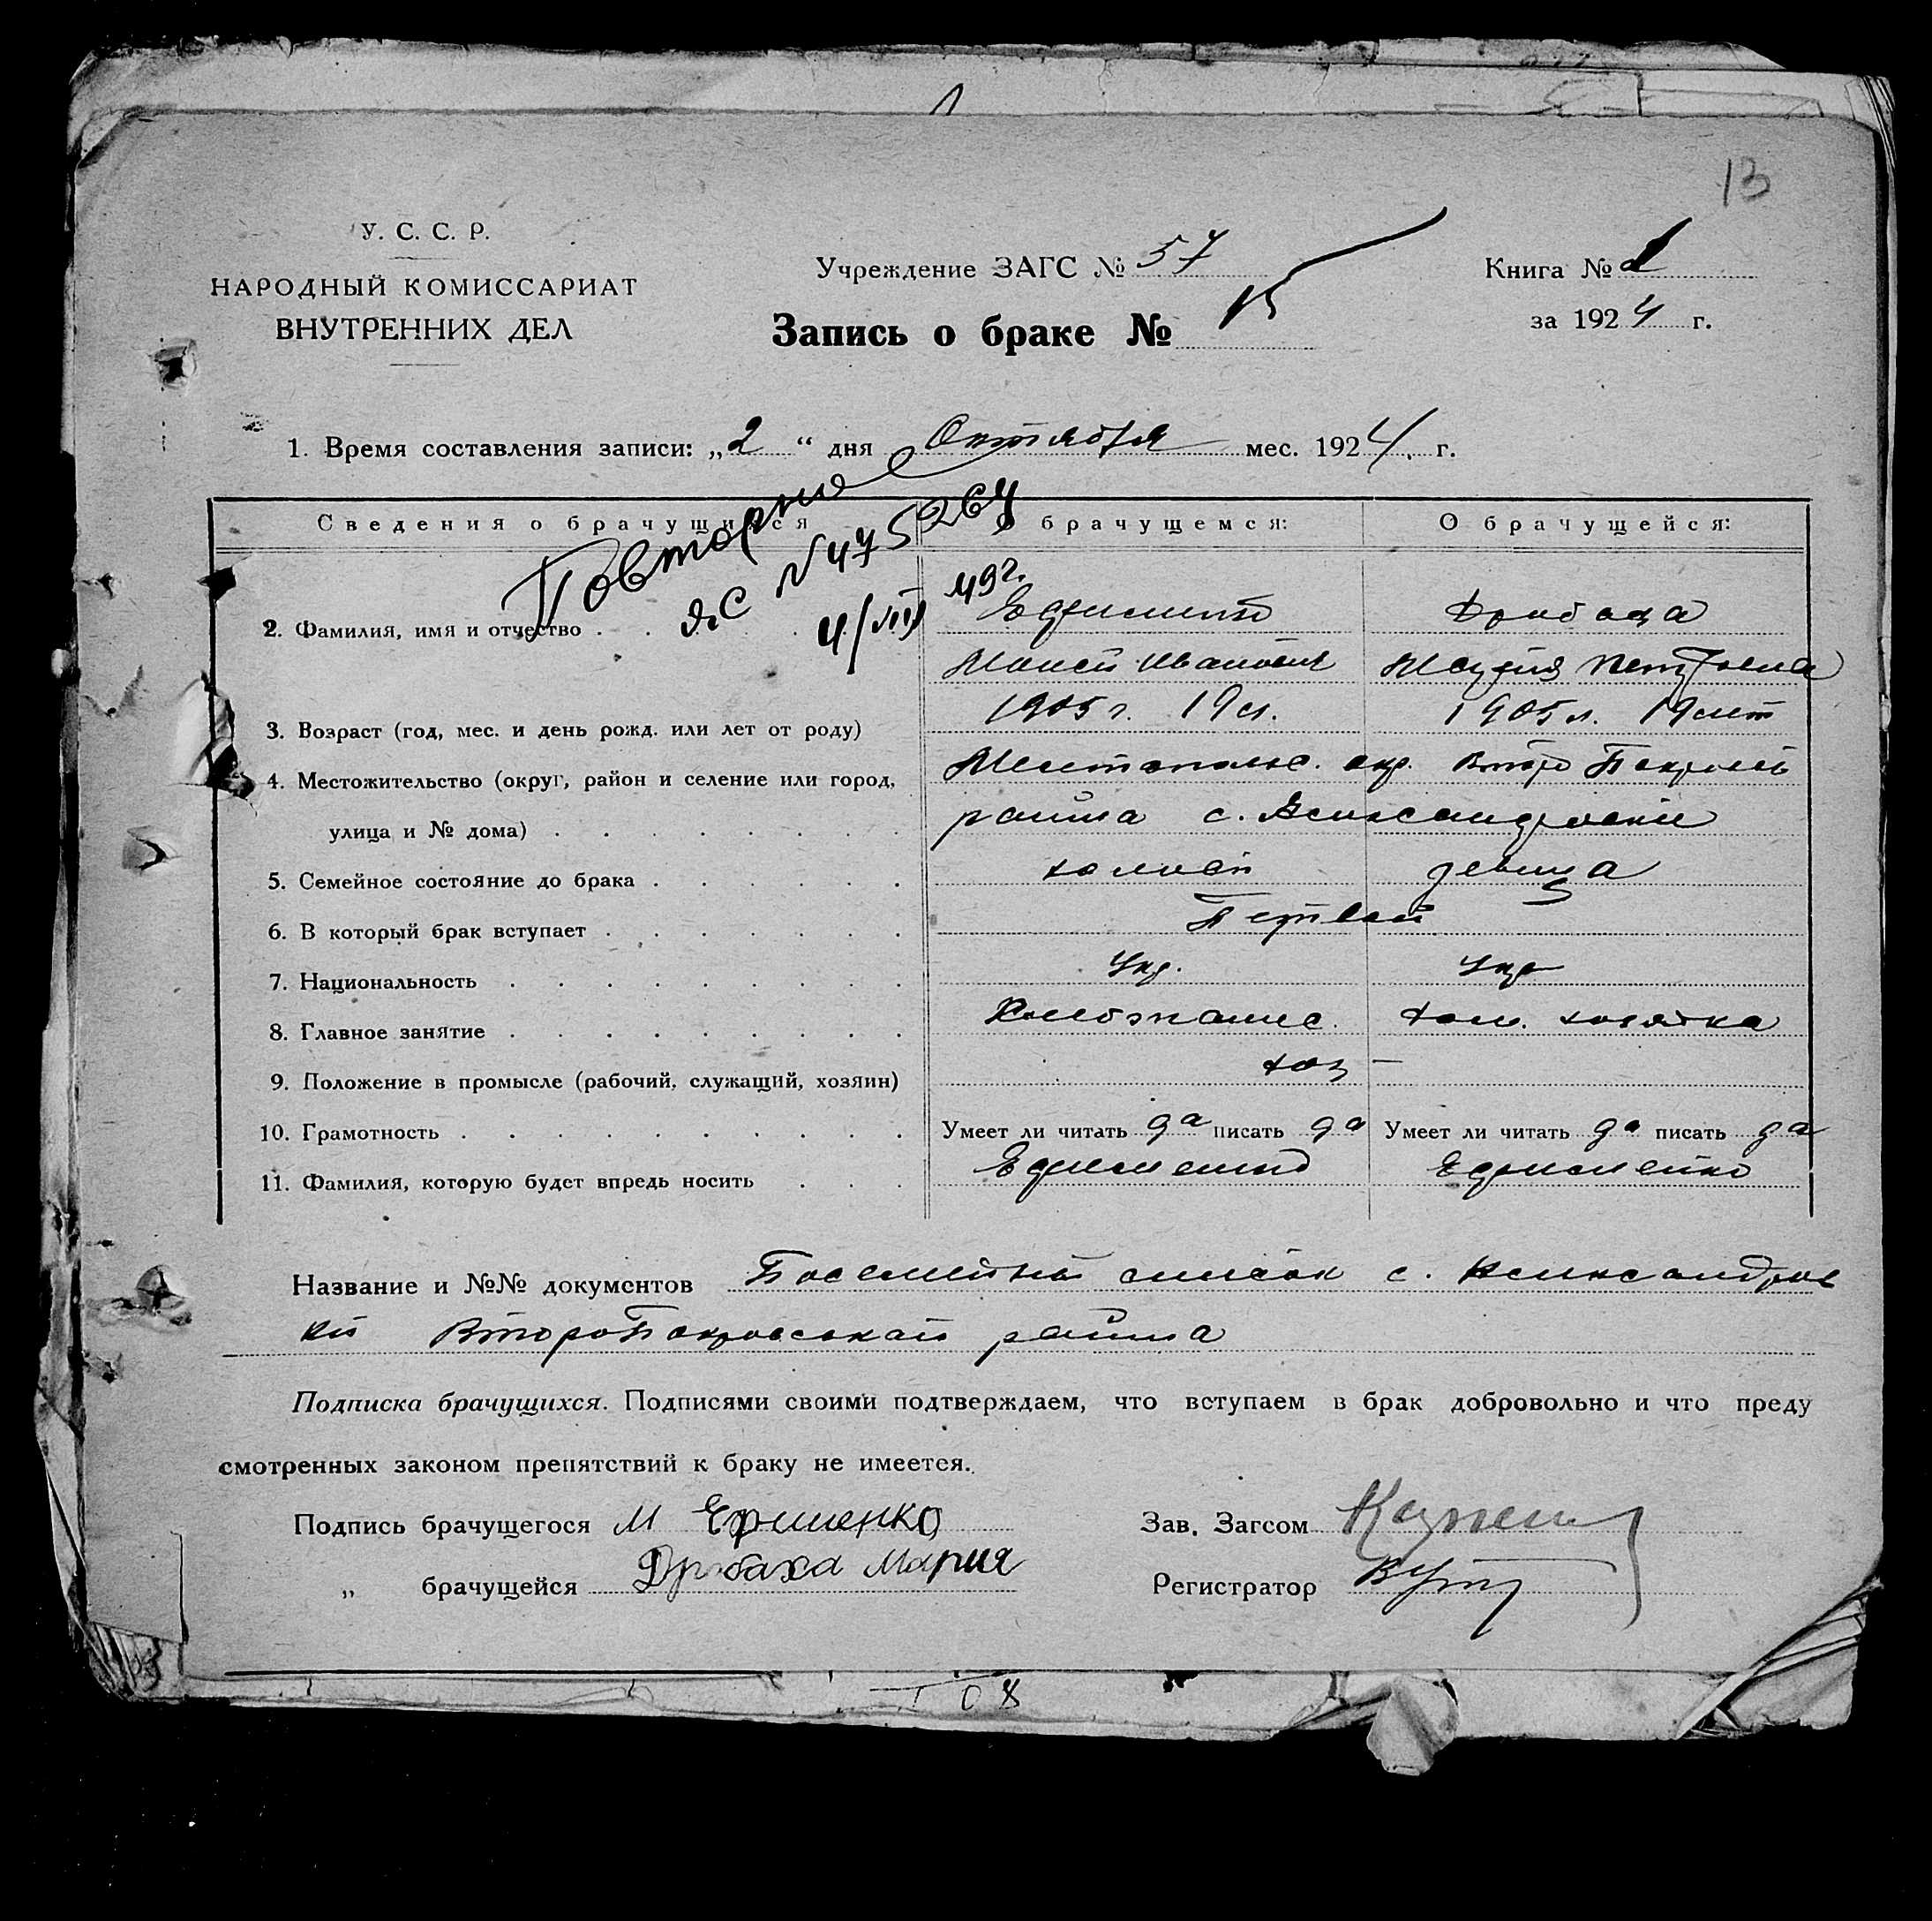 13
У. С. С. Р.
НАРОДНЫЙ КОМИССАРИАТ
ВНУТРЕННИХ ДЕЛ
Учреждение ЗАГС № 57
Книга № 1
Запись о браке № 15
за 1924 г.
1. Время составления записи: „2“ дня Октября мес. 1924 г.
Повторное
яс №475264
4/VII 49 г.
Сведения о брачущихся О брачущемся: О брачущейся:
2. Фамилия, имя и отчество Ефименко Дрибаха
Моисей Иванович Мария Петровна
3. Возраст (год, мес. и день рожд. или лет от роду) 1905 г. 19 л. 1905 л. 19 лет
4. Местожительство (округ, район и селение или город, Мелитопольс. окр. Второ Покровс
улица и № дома) района с. Александровки
5. Семейное состояние до брака холост девица
6. В который брак вступает Первый
7. Национальность Укр. Укр
8. Главное занятие Хлебопашес. дом. хозяйка
9. Положение в промысле (рабочий, служащий, хозяин) хоз –
10. Грамотность Умеет ли читать да писать да Умеет ли читать да писать да
11. Фамилия, которую будет впредь носить Ефименко Ефименко
Название и №№ документов Посемейный список с. Александров
ки ВтороПокровской района
Подписка брачущихся. Подписями своими подтверждаем, что вступаем в брак добровольно и что преду
смотренных законом препятствий к браку не имеется.
Подпись брачущегося М Ефименко Зав. Загсом
„ брачущейся Дрибаха Мария Регистратор
108